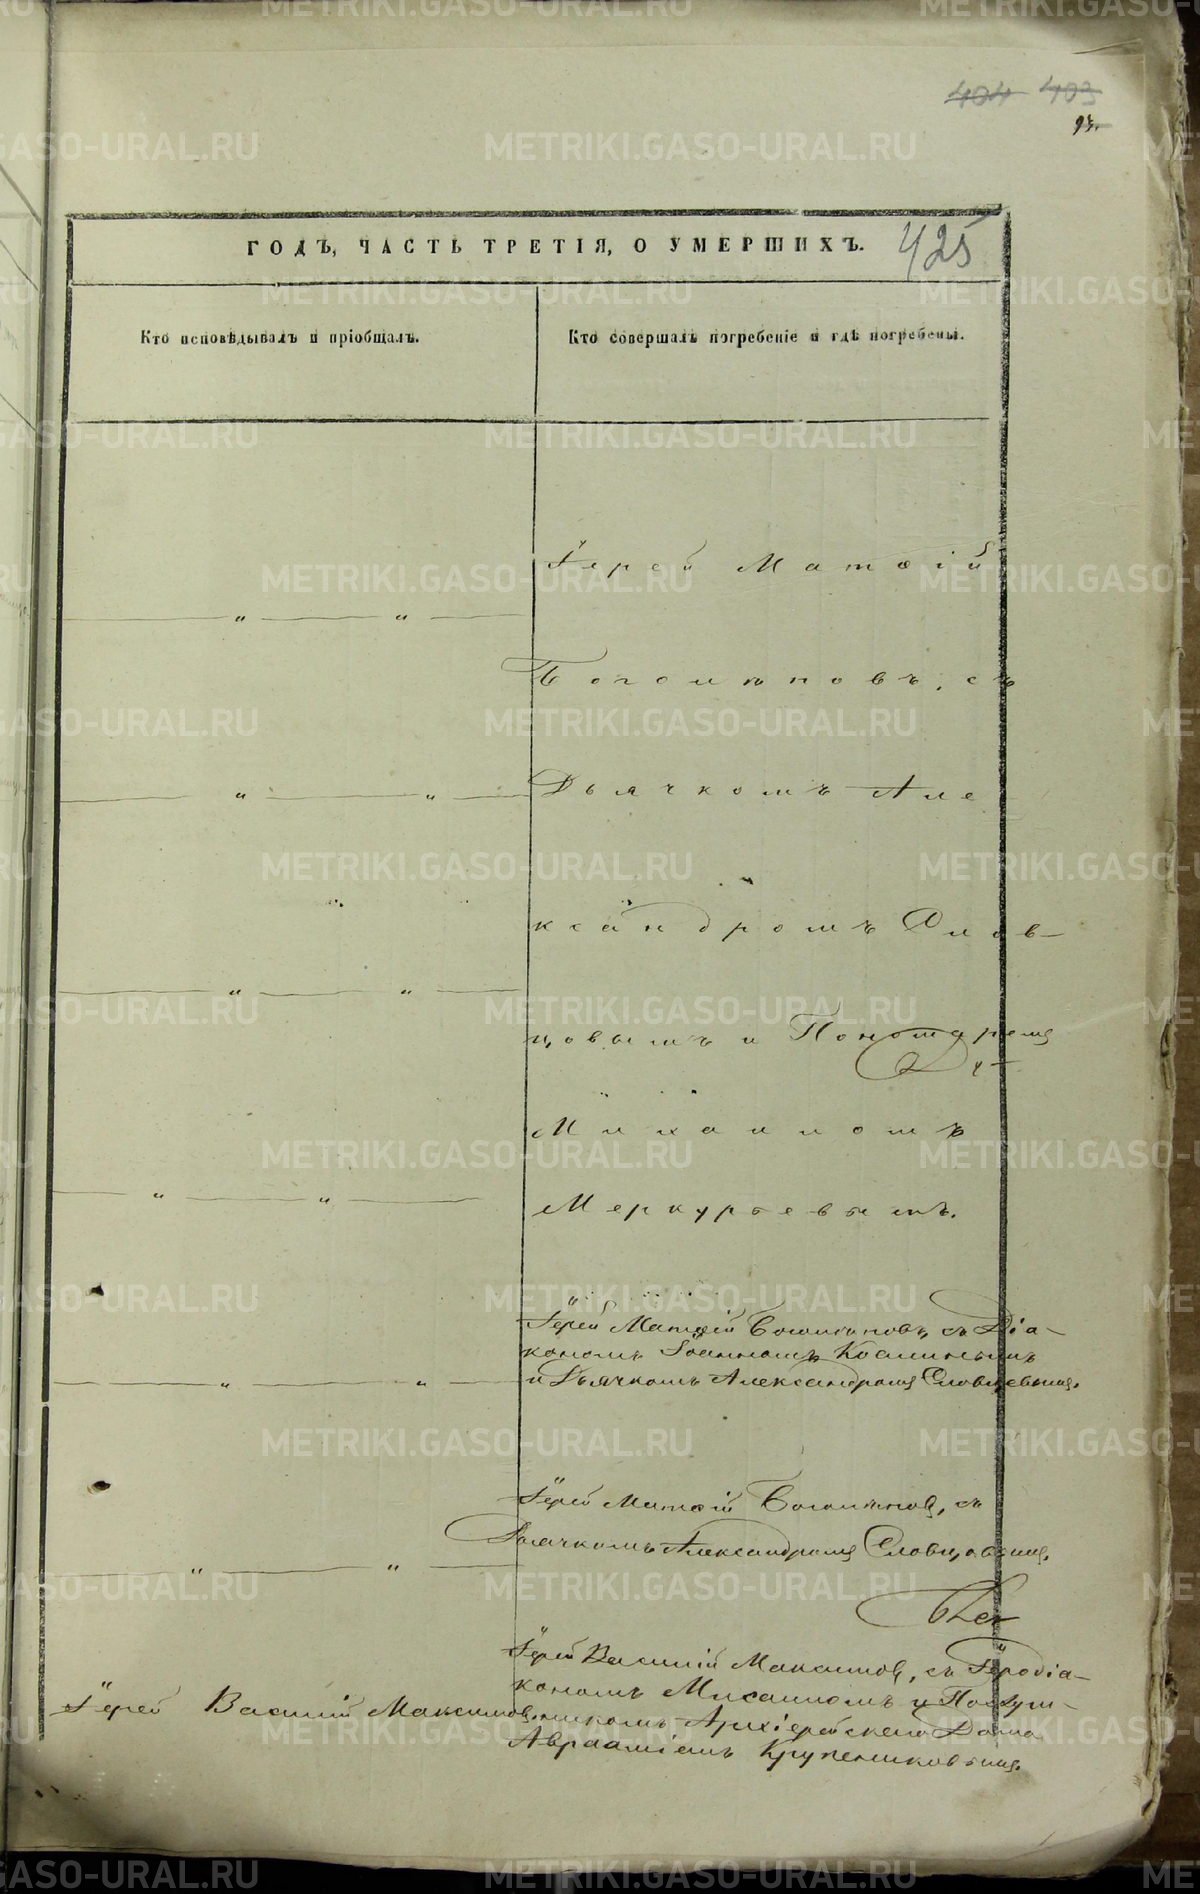 404 403
93.
ГОДЪ, ЧАСТЬ ТРЕТІЯ, О УМЕРШИХЪ. 425
Кто исповѣдывалъ и пріобщалъ.
Кто совершалъ погребеніе и гдѣ погребены.
Іерей Матѳій
Богомоловъ, съ
Дьячкомъ Але
ксандромъ Слов-
цовымъ и Пономаремъ
Михаиломъ
Меркурьевымъ.
Іерей Матѳій съ Діа-
кономъ Іоанномъ
и Дьячкомъ Александромъ Словцевымъ.
Іерей Матѳій съ
Дьячкомъ Александромъ Словцовымъ.
Іерей Василій Максимовъ
Іерей Василій Максимовъ, съ Іеродіа-
кономъ Мисаиломъ и Послуш-
никомъ Архіерейскаго Дома
Авраамiемъ Крупениковымъ.
METRIKI.GASO-URAL.RU